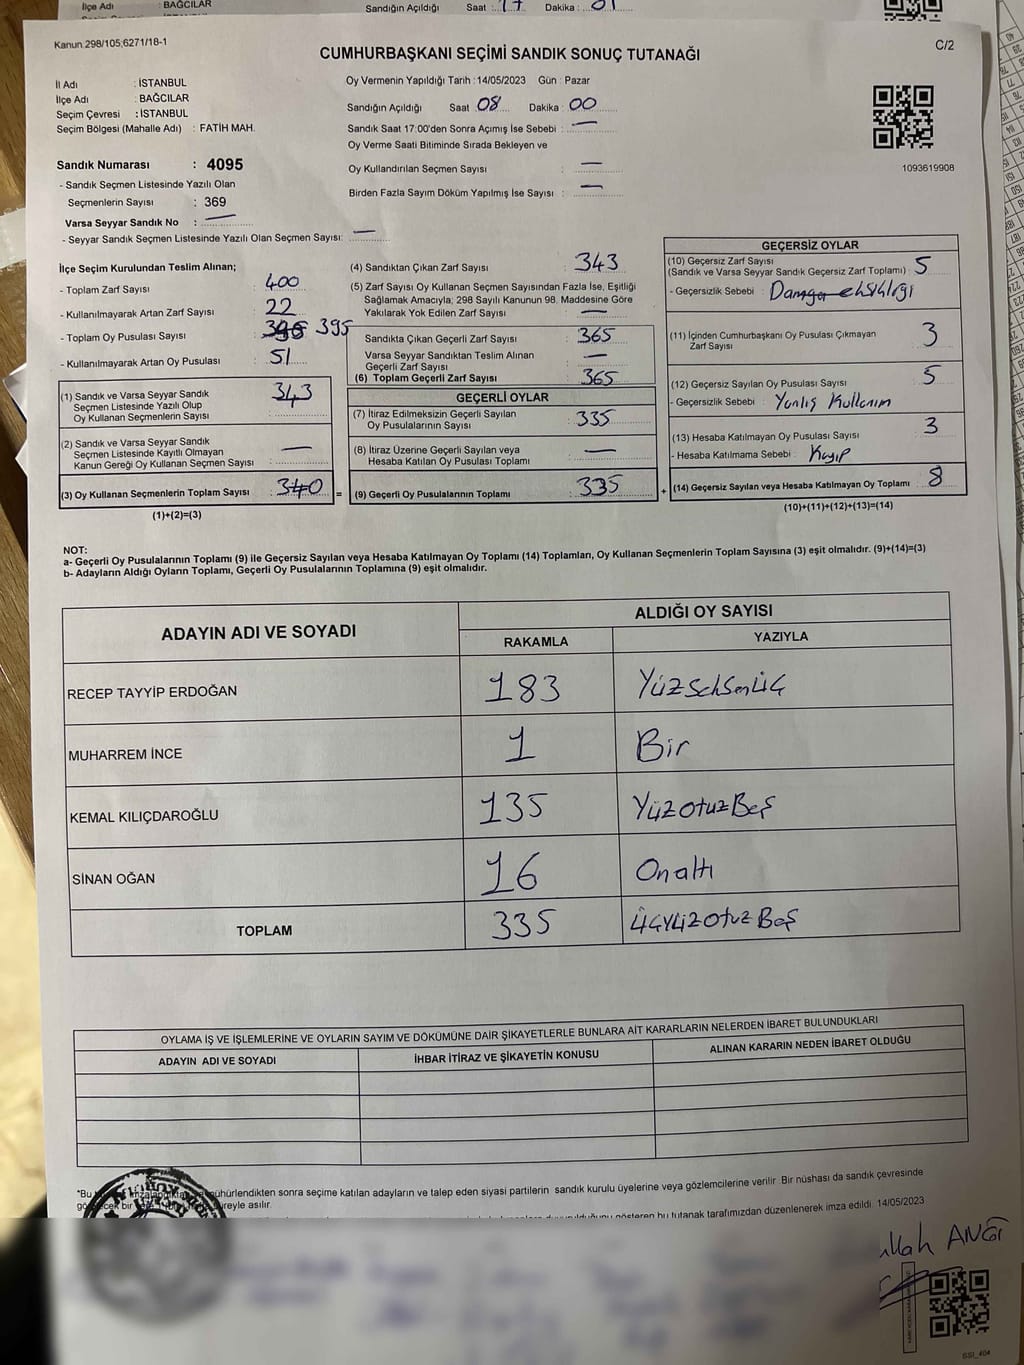 İlçe Adı : BAĞCILAR
Sandığın Açıldığı Saat : 17 Dakika : 01
Kanun 298/105;6271/18-1
C/2
CUMHURBAŞKANI SEÇİMİ SANDIK SONUÇ TUTANAĞI
İl Adı : İSTANBUL
İlçe Adı : BAĞCILAR
Seçim Çevresi : İSTANBUL
Seçim Bölgesi (Mahalle Adı) : FATİH MAH.
Oy Vermenin Yapıldığı Tarih : 14/05/2023 Gün : Pazar
Sandığın Açıldığı Saat 08 Dakika : 00
Sandık Saat 17:00'den Sonra Açımış İse Sebebi : —
Oy Verme Saati Bitiminde Sırada Bekleyen ve
Oy Kullandırılan Seçmen Sayısı : —
Birden Fazla Sayım Döküm Yapılmış İse Sayısı : —
1093619908
Sandık Numarası : 4095
- Sandık Seçmen Listesinde Yazılı Olan
Seçmenlerin Sayısı : 369
Varsa Seyyar Sandık No : —
- Seyyar Sandık Seçmen Listesinde Yazılı Olan Seçmen Sayısı: —
İlçe Seçim Kurulundan Teslim Alınan;
- Toplam Zarf Sayısı : 400
- Kullanılmayarak Artan Zarf Sayısı : 22
- Toplam Oy Pusulası Sayısı : 395
- Kullanılmayarak Artan Oy Pusulası : 51
(1) Sandık ve Varsa Seyyar Sandık
Seçmen Listesinde Yazılı Olup
Oy Kullanan Seçmenlerin Sayısı : 343
(2) Sandık ve Varsa Seyyar Sandık
Seçmen Listesinde Kayıtlı Olmayan
Kanun Gereği Oy Kullanan Seçmen Sayısı : —
(3) Oy Kullanan Seçmenlerin Toplam Sayısı : 340 =
(1)+(2)=(3)
(4) Sandıktan Çıkan Zarf Sayısı : 343
(5) Zarf Sayısı Oy Kullanan Seçmen Sayısından Fazla İse, Eşitliği
Sağlamak Amacıyla; 298 Sayılı Kanunun 98. Maddesine Göre
Yakılarak Yok Edilen Zarf Sayısı : —
Sandıkta Çıkan Geçerli Zarf Sayısı : 365
Varsa Seyyar Sandıktan Teslim Alınan
Geçerli Zarf Sayısı : —
(6) Toplam Geçerli Zarf Sayısı : 365
GEÇERLİ OYLAR
(7) İtiraz Edilmeksizin Geçerli Sayılan
Oy Pusulalarının Sayısı : 335
(8) İtiraz Üzerine Geçerli Sayılan veya
Hesaba Katılan Oy Pusulası Toplamı : —
(9) Geçerli Oy Pusulalarının Toplamı : 335 +
GEÇERSİZ OYLAR
(10) Geçersiz Zarf Sayısı
(Sandık ve Varsa Seyyar Sandık Geçersiz Zarf Toplamı) : 5
- Geçersizlik Sebebi : Damga eksikliği
(11) İçinden Cumhurbaşkanı Oy Pusulası Çıkmayan
Zarf Sayısı : 3
(12) Geçersiz Sayılan Oy Pusulası Sayısı : 5
- Geçersizlik Sebebi : Yanlış Kullanım
(13) Hesaba Katılmayan Oy Pusulası Sayısı : 3
- Hesaba Katılmama Sebebi : Kayıp
(14) Geçersiz Sayılan veya Hesaba Katılmayan Oy Toplamı : 8
(10)+(11)+(12)+(13)=(14)
NOT:
a- Geçerli Oy Pusulalarının Toplamı (9) ile Geçersiz Sayılan veya Hesaba Katılmayan Oy Toplamı (14) Toplamları, Oy Kullanan Seçmenlerin Toplam Sayısına (3) eşit olmalıdır. (9)+(14)=(3)
b- Adayların Aldığı Oyların Toplamı, Geçerli Oy Pusulalarının Toplamına (9) eşit olmalıdır.
ADAYIN ADI VE SOYADI
ALDIĞI OY SAYISI
RAKAMLA YAZIYLA
RECEP TAYYİP ERDOĞAN 183 YüzseksenÜç
MUHARREM İNCE 1 Bir
KEMAL KILIÇDAROĞLU 135 YüzotuzBeş
SİNAN OĞAN 16 Onaltı
TOPLAM 335 ÜçyüzotuzBeş
OYLAMA İŞ VE İŞLEMLERİNE VE OYLARIN SAYIM VE DÖKÜMÜNE DAİR ŞİKAYETLERLE BUNLARA AİT KARARLARIN NELERDEN İBARET BULUNDUKLARI
ADAYIN ADI VE SOYADI İHBAR İTİRAZ VE ŞİKAYETİN KONUSU ALINAN KARARIN NEDEN İBARET OLDUĞU
*Bu mühürlendikten sonra seçime katılan adayların ve talep eden siyasi partilerin sandık kurulu üyelerine veya gözlemcilerine verilir. Bir nüshası da sandık çevresinde
bir süreyle asılır.
gösteren bu tutanak tarafımızdan düzenlenerek imza edildi. 14/05/2023